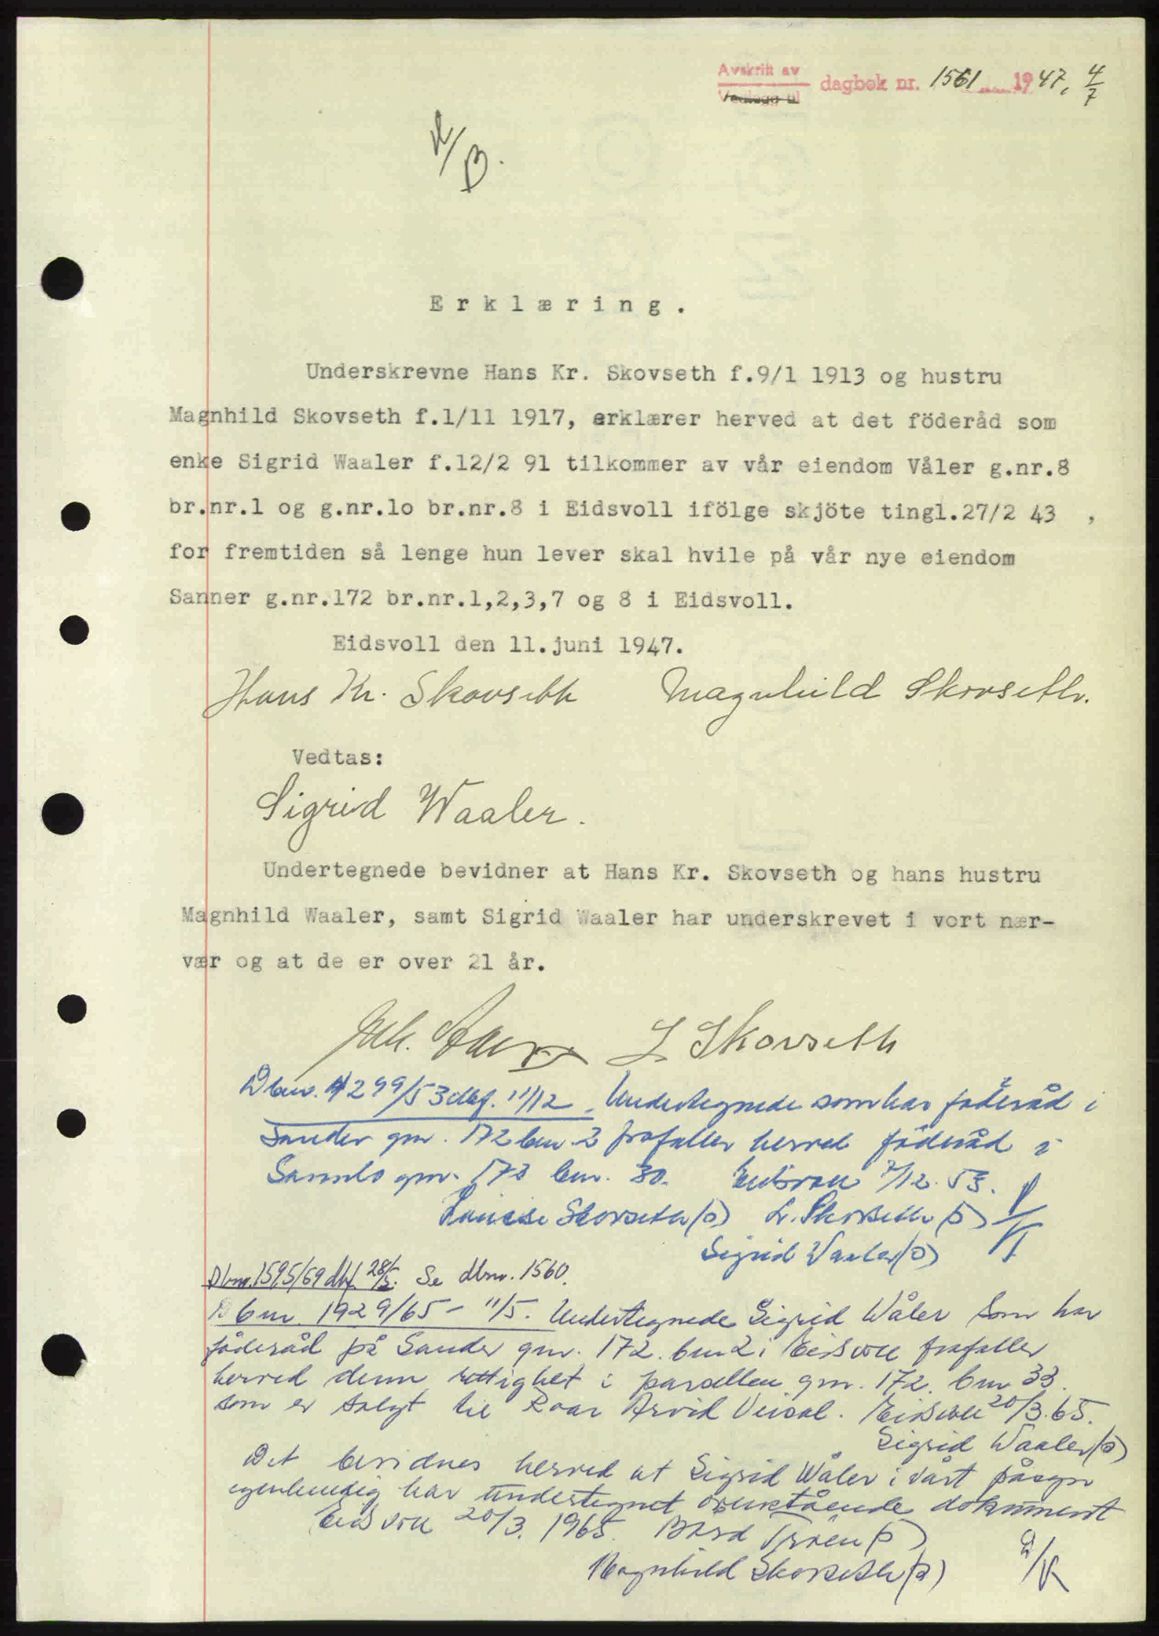 Avskrift av
Vedlegg til dagbok nr. 1561 1947, 4/7
E r k l æ r i n g .
Underskrevne Hans Kr. Skovseth f.9/1 1913 og hustru
Magnhild Skovseth f.1/11 1917, erklærer herved at det föderåd som
enke Sigrid Waaler f.12/2 91 tilkommer av vår eiendom Våler g.nr.8
br.nr.1 og g.nr.lo br.nr.8 i Eidsvoll ifölge skjöte tingl.27/2 43 ,
for fremtiden så lenge hun lever skal hvile på vår nye eiendom
Sanner g.nr.172 br.nr.1,2,3,7 og 8 i Eidsvoll.
Eidsvoll den 11.juni 1947.
Hans Kr. Skovseth Magnhild Skovseth.
Vedtas:
Sigrid Waaler.
Undertegnede bevidner at Hans Kr. Skovseth og hans hustru
Magnhild Waaler, samt Sigrid Waaler har underskrevet i vort nær-
vær og at de er over 21 år.
L Skovseth
Dbnr. 4299/53 dbf. 11/12. Undertegnede som har föderåd i
Sander gnr. 172 bnr 2 frafaller herved föderåd i
gnr. 172 bnr. 30. Eidsvoll 7/12 53.
Skovseth (s) L. Skovseth (s)
Sigrid Waaler (s)
Dbnr. 1595/69 dbf. 28/5. Se dbnr. 1560.
Dbnr. 1929/65 - 11/5. Undertegnede Sigrid Wåler som har
föderåd på Sander gnr. 172 bnr 2 i Eidsvoll frafaller
herved denne rettighet i parsellen gnr. 172. bnr 33.
som er solgt til Roar Arvid Veisal. Eidsvoll 20/3.65.
Sigrid Waaler (s)
Det bevidnes herved at Sigrid Wåler i vårt påsyn
egenhendig har undertegnet ovenstående dokument
Eidsvoll 20/3. 1965. Bård (s)
Magnhild Skovseth (s)